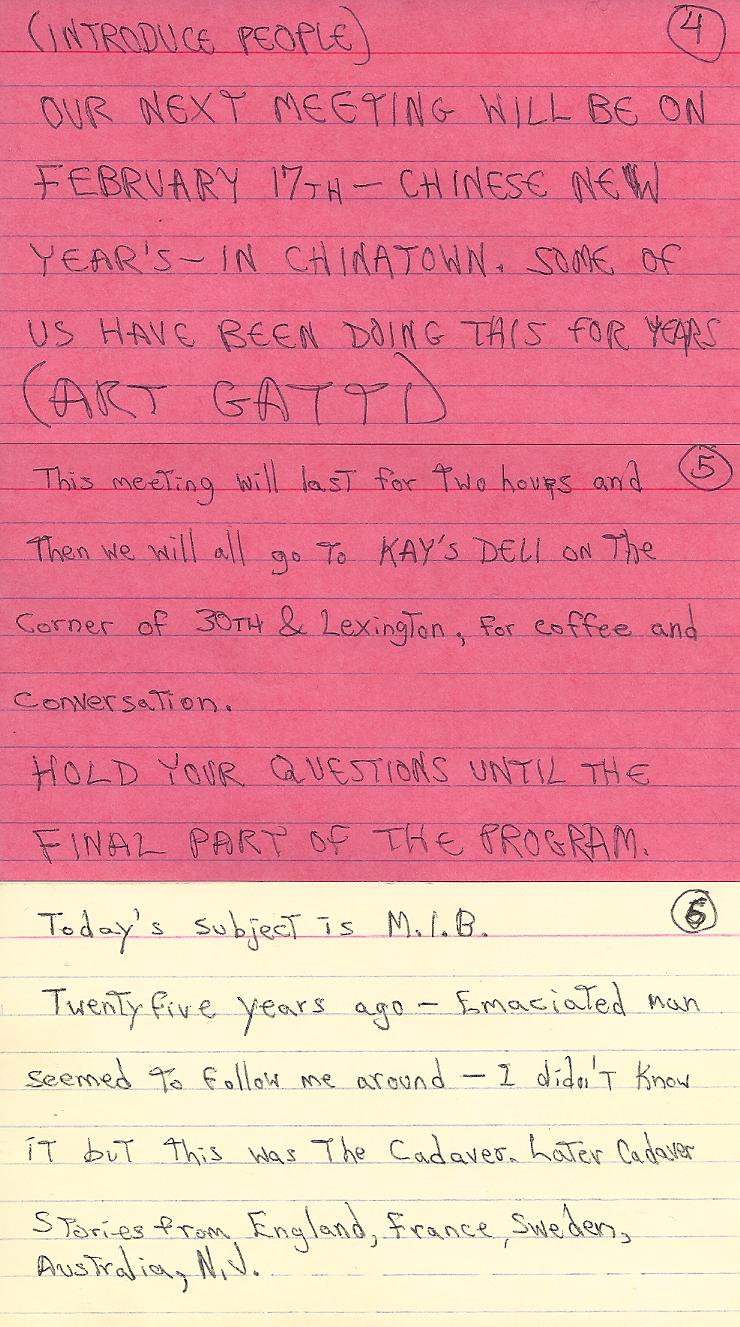 (INTRODUCE PEOPLE) 4
OUR NEXT MEETING WILL BE ON
FEBRUARY 17TH — CHINESE NEW
YEAR'S — IN CHINATOWN. SOME OF
US HAVE BEEN DOING THIS FOR YEARS
(ART GATTI)
This meeting will last for two hours and 5
Then we will all go to KAY'S DELI ON The
Corner of 30TH & Lexington, for coffee and
conversation.
HOLD YOUR QUESTIONS UNTIL THE
FINAL PART OF THE PROGRAM.
Today's subject is M.I.B. 6
Twenty five years ago — Emaciated man
seemed to follow me around — I didn't know
it but this was The Cadaver. Later Cadaver
Stories from England, France, Sweden,
Australia, N.J.